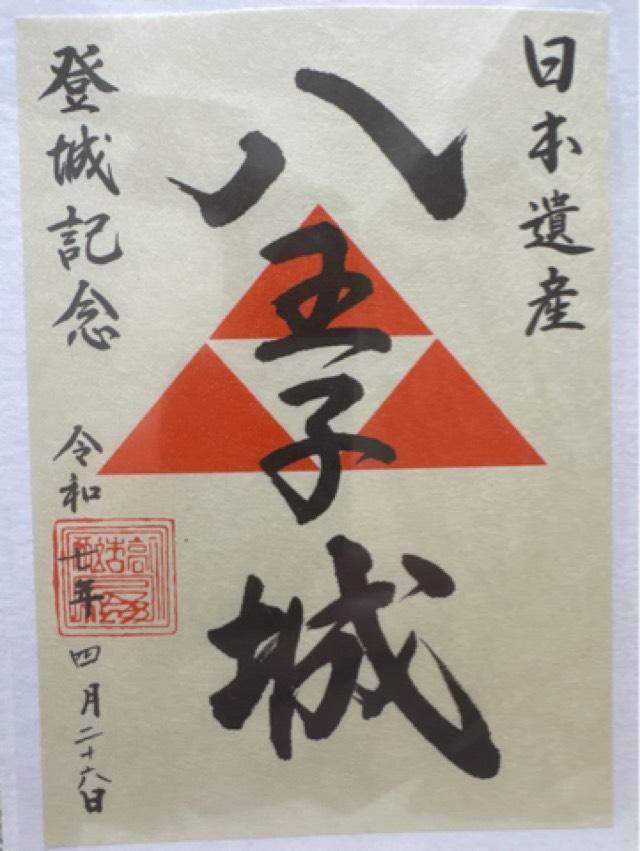 日本遺産
八王子城
登城記念
令和七年四月二十六日